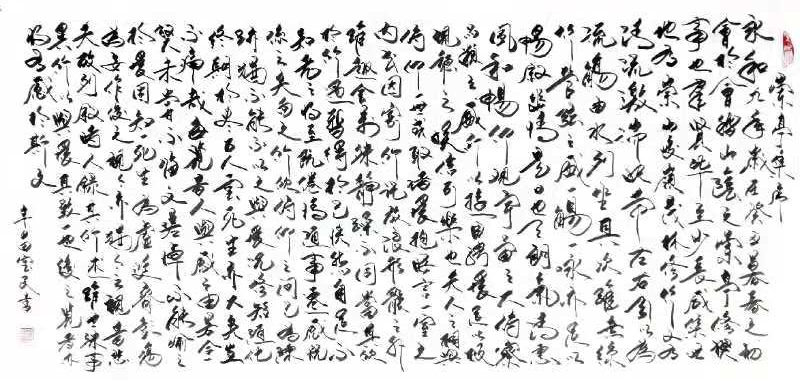 蘭亭集序
永和九年歲在癸丑暮春之初
會於會稽山陰之蘭亭修禊
事也群賢畢至少長咸集此
地有崇山峻嶺茂林修竹又有
清流激湍映帶左右引以為
流觴曲水列坐其次雖無絲
竹管弦之盛一觴一詠亦足以
暢敘幽情是日也天朗氣清惠
風和暢仰觀宇宙之大俯察
品類之盛所以遊目騁懷足以極
視聽之娛信可樂也夫人之相與
俯仰一世或取諸懷抱晤言一室之
內或因寄所託放浪形骸之外
雖趣舍萬殊靜躁不同當其欣
於所遇暫得於己快然自足不
知老之將至既倦情隨事遷感慨
係之矣向之所欣俯仰之間已為陳
跡猶不能不以之興懷況修短隨化
終期於盡古人云死生亦大矣豈
不痛哉每覽昔人興感之由若合
一契未嘗不臨文嗟悼不能喻之
於懷固知一死生為虛誕齊彭殤
為妄作後之視今亦猶今之視昔悲
夫故列敘時人錄其所述雖世殊事
異所以興懷其致一也後之覽者亦
將有感於斯文